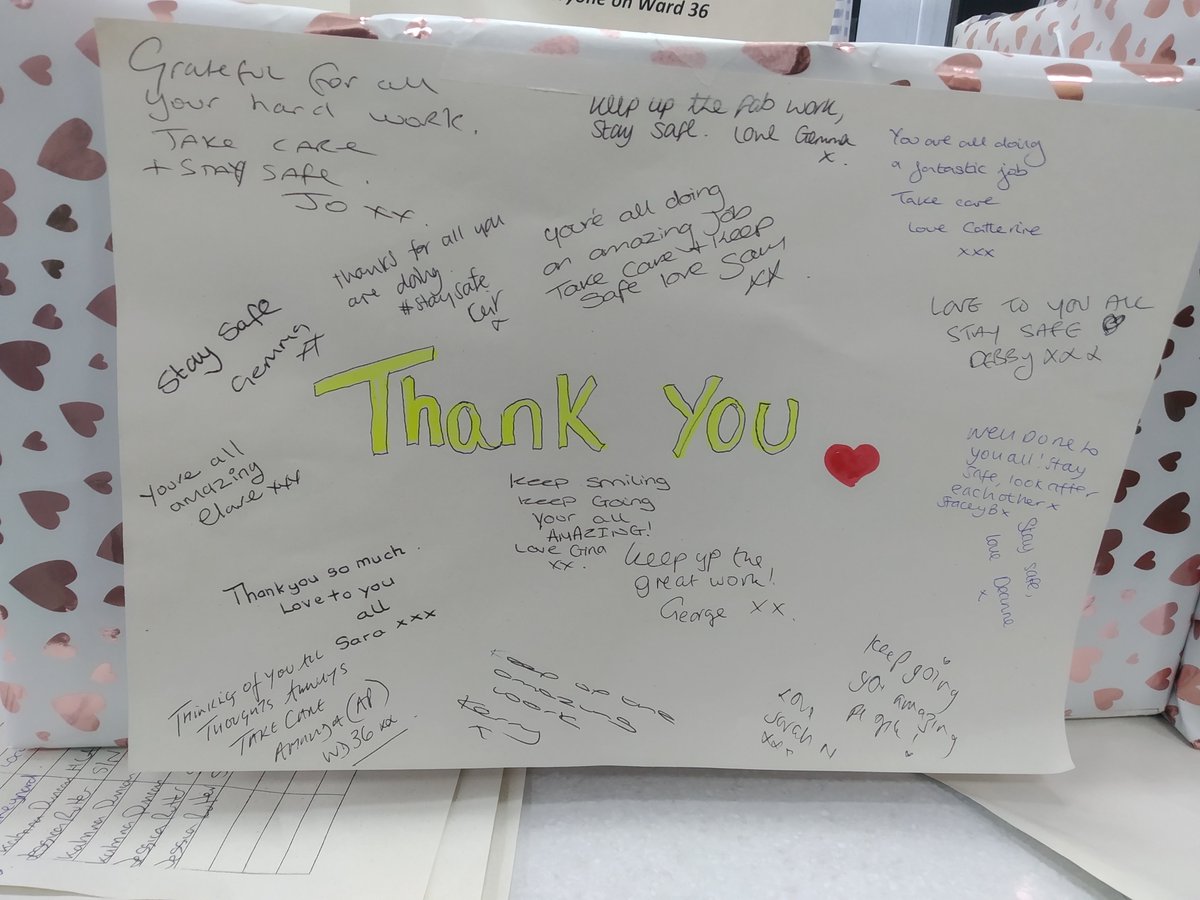 yone on Ward 36
Grateful for all
your hard work.
TAKE CARE
+ STAY SAFE.
JO xx.
Keep up the fab work,
Stay safe. Love Gemma
x.
You are all doing
a fantastic job
Take care
Love Catherine
xxx
thanks for all you
are doing
#staysafe
you're all doing
an amazing job
Take care + keep
safe love Sam
xx
LOVE TO YOU ALL
STAY SAFE
DEBBY xxx
Stay Safe
Gemma
Thank You
You're all
amazing
Clare xxx
keep smiling
keep Going
your all
AMAZING!
Love Gina
xx.
Well Done to
you all! Stay
Safe, look after
each other x
Stacey B x
Stay safe,
love Deanne
x
Keep up the
great work!
George xx.
Thankyou so much
Love to you
all
Sara xxx
Thinking of you All
Thoughts Always
TAKE CARE
Amanda (AP)
WD36 xx
Keep up the
amazing
work
Kerry
x
Keep going
you amazing
people
Love
Sarah N
xxx